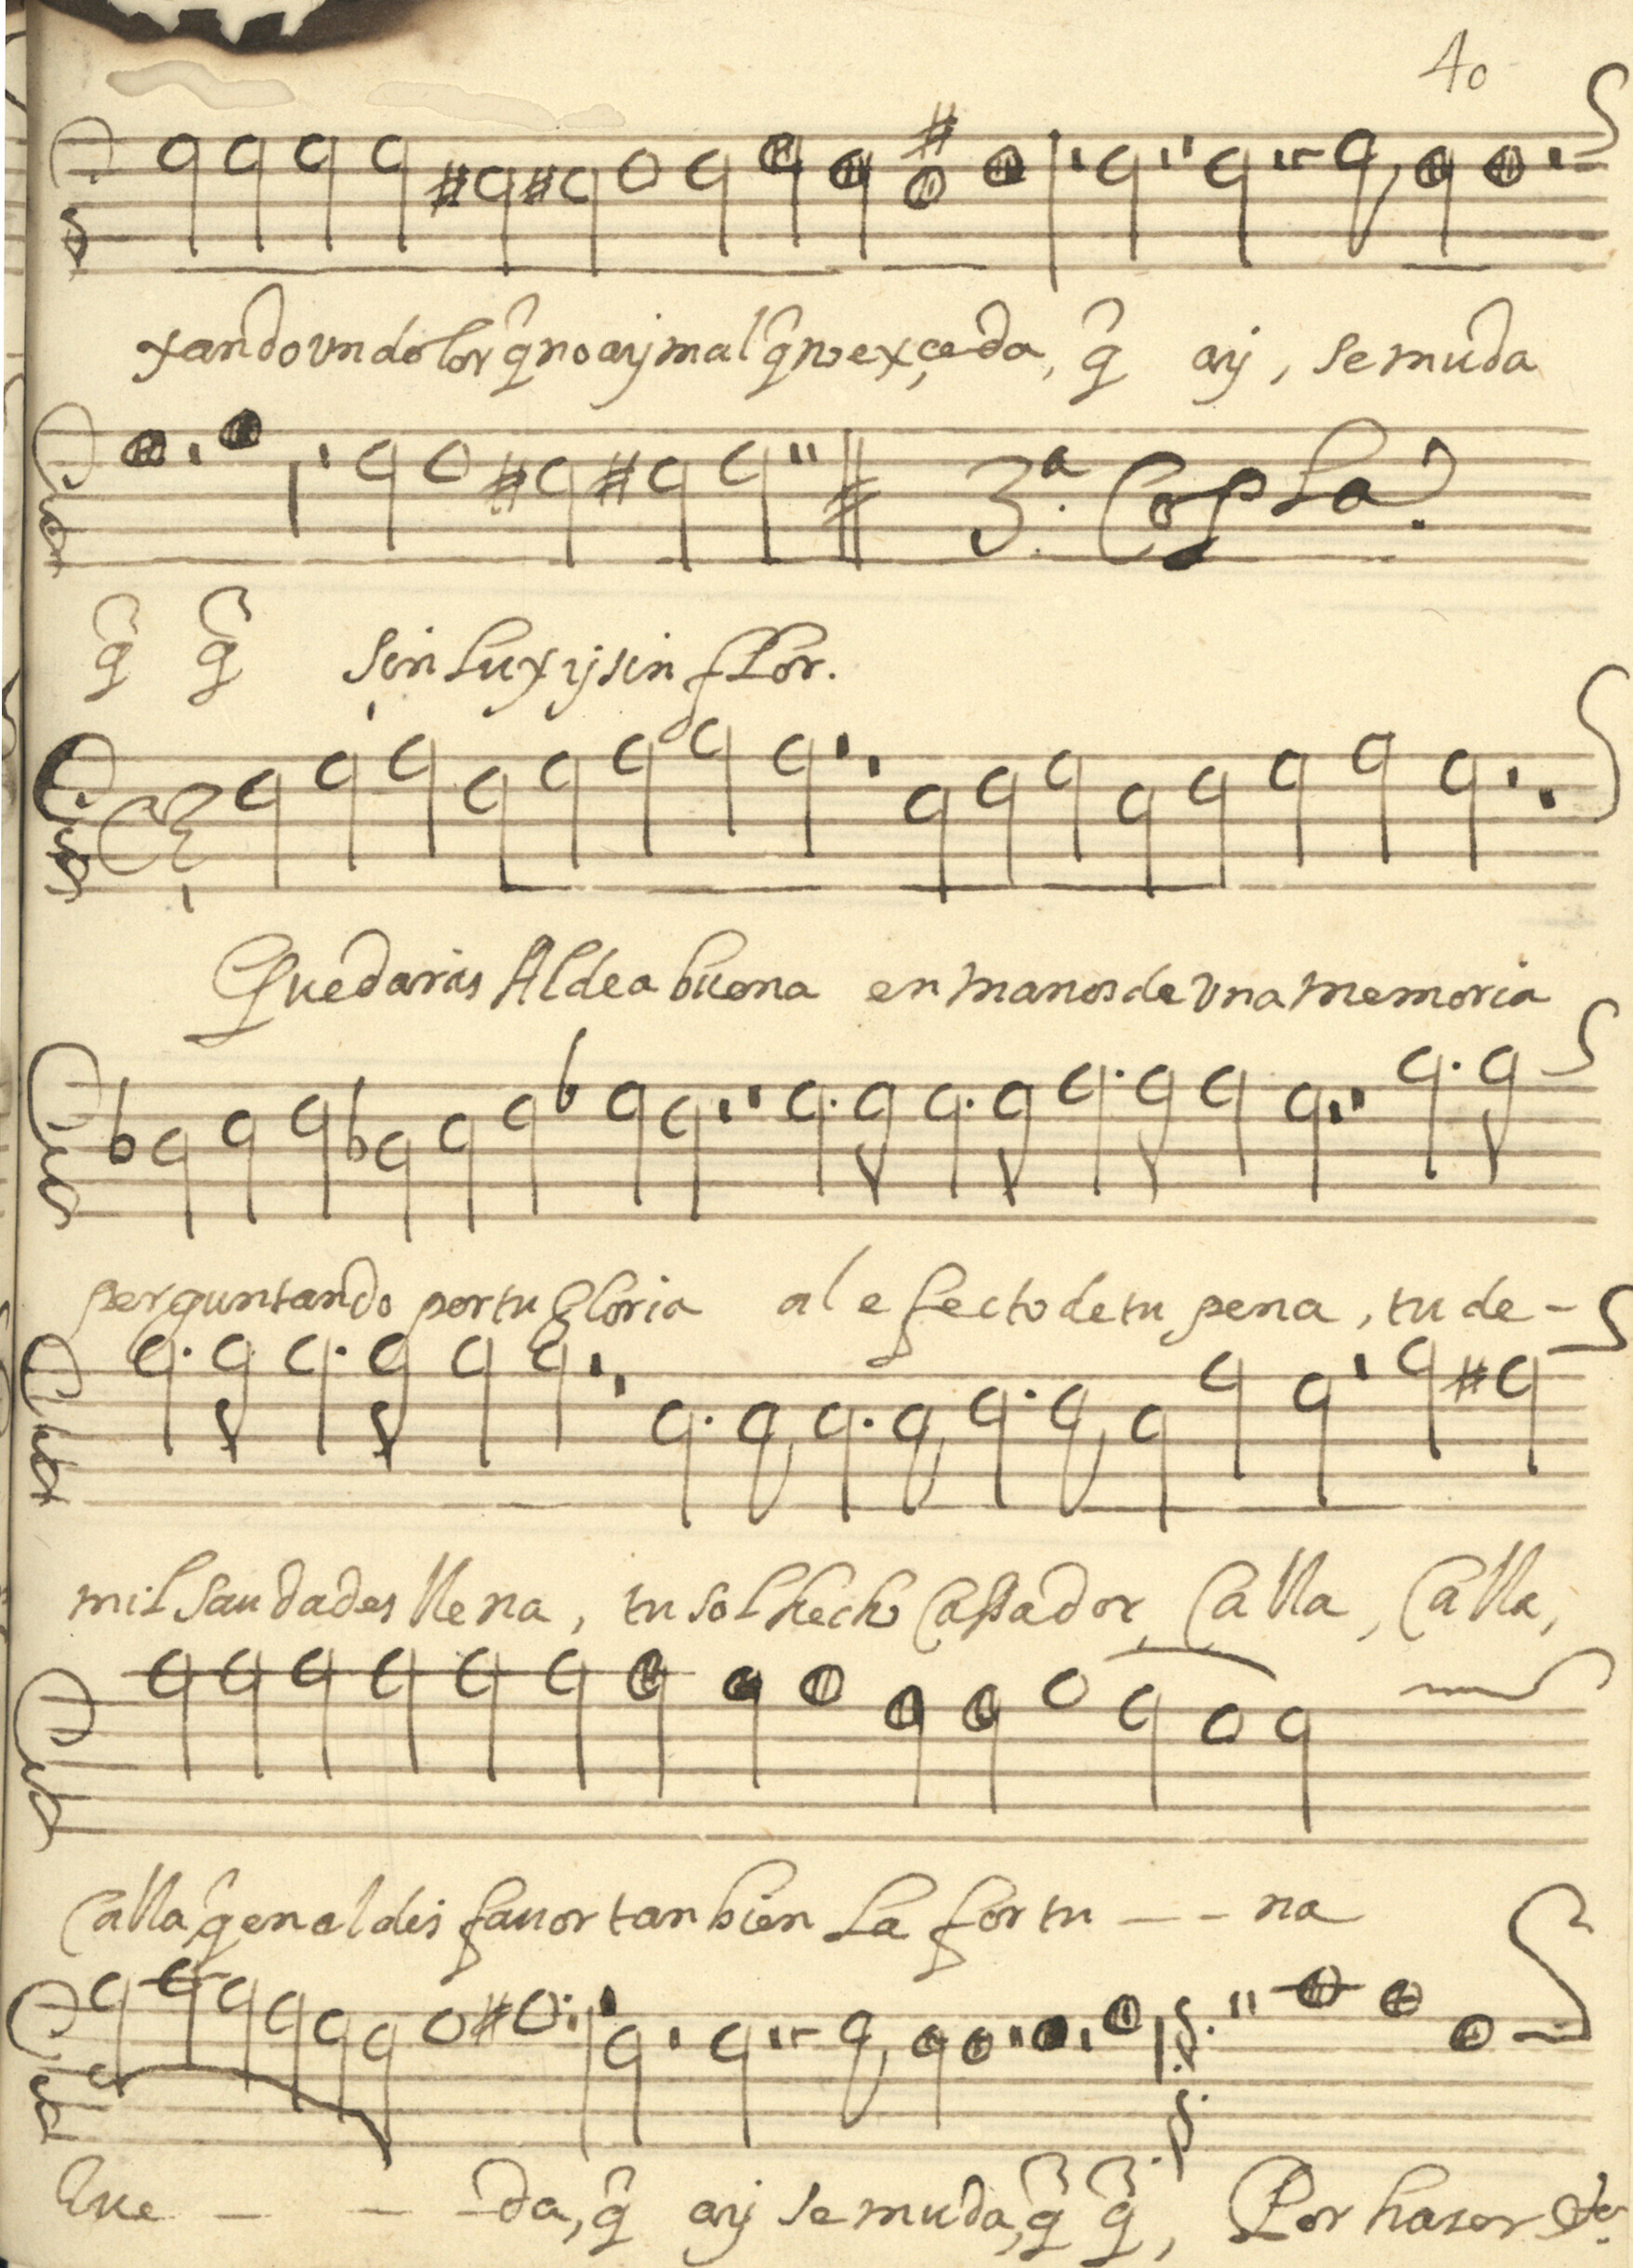 40
xando vn dolor q̃ no aij mal q̃ no exçeda, q̃ aij, se muda
3ª. Copla.
q̃ q̃ sin lux ij sin flor.
Quedarias Aldea buena en manos de vna memoria
perguntando por tu gloria al efecto de tu pena, tu de-
mil saudades llena, tu sol hecho Cassador, Calla, Calla,
Calla q̃ en al dis fauor tan bien la fortu - - na
Rue - - - da, q̃ aij se muda, q̃ q̃, Por haser &c.